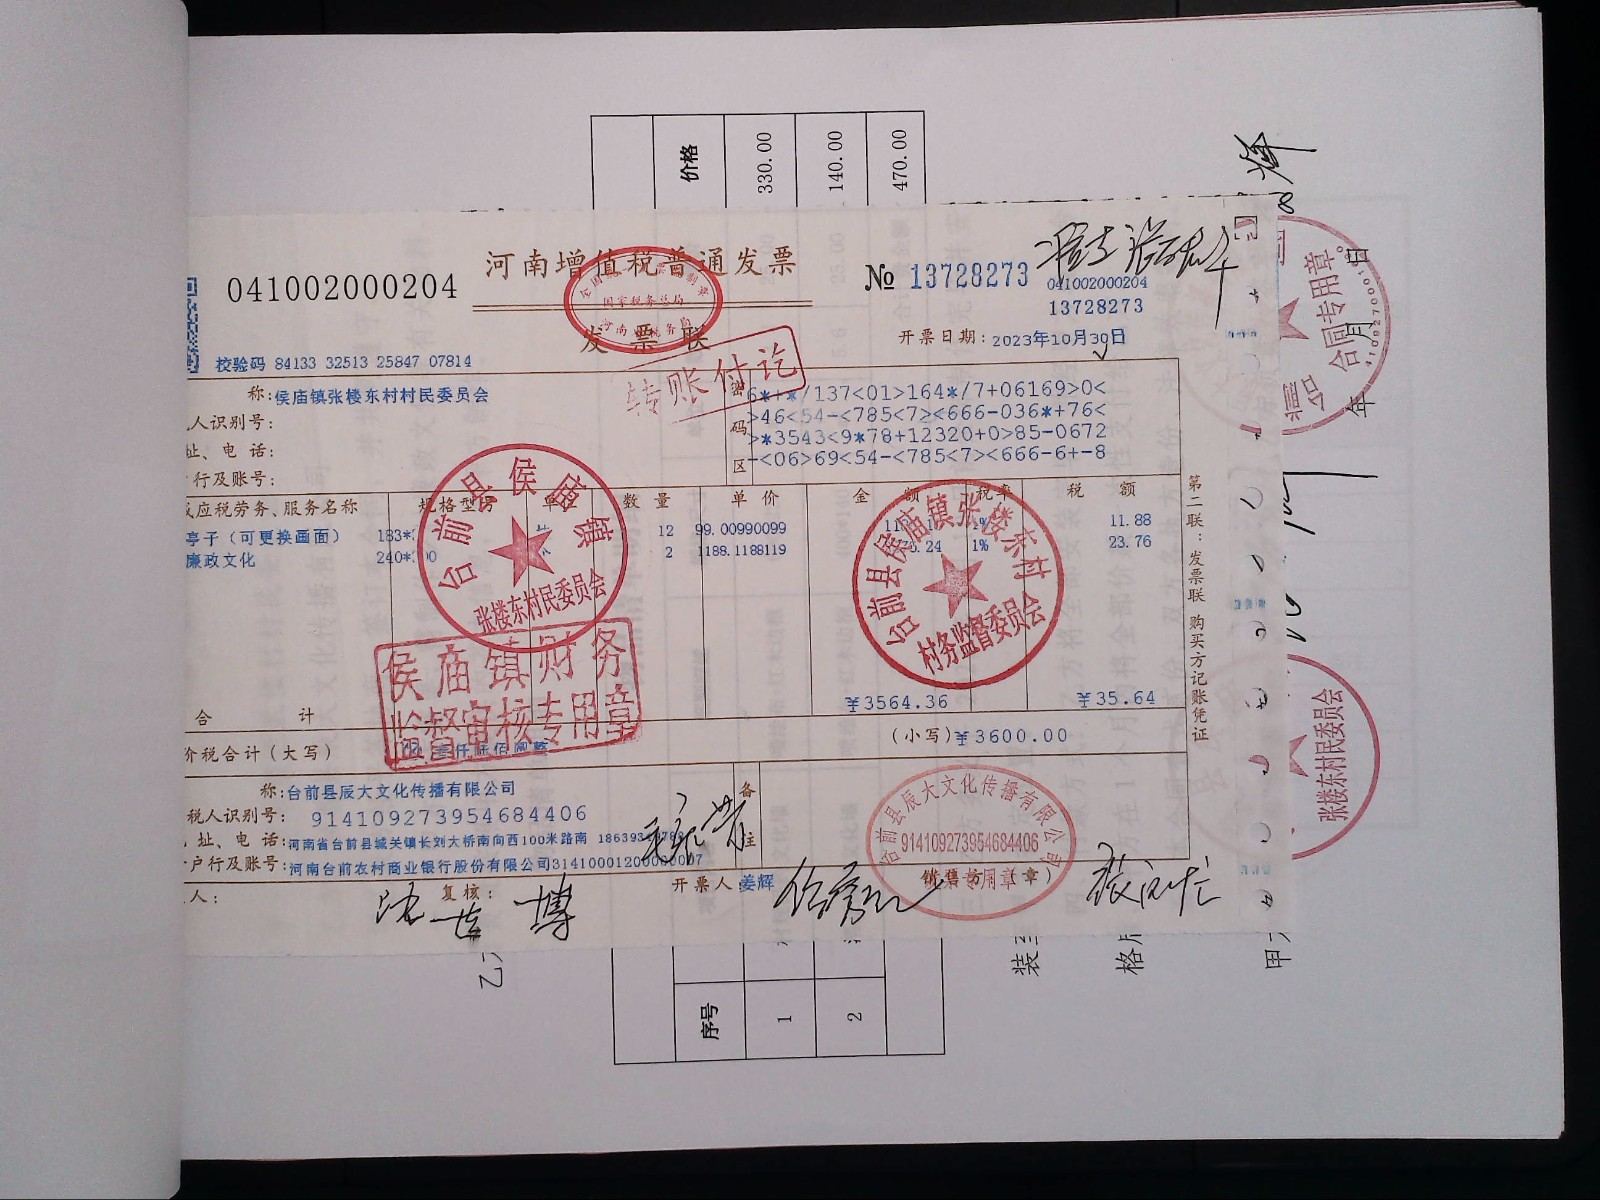 河南增值税普通发票
发票联
041002000204
№ 13728273
041002000204
13728273
校验码 84133 32513 25847 07814
开票日期：2023年10月30日
转账付讫
全国统一发票监制章
国家税务总局
河南省税务局
称：侯庙镇张楼东村村民委员会
人识别号：
址、电话：
行及账号：
密码区
6*+*/137<01>164*/7+06169>0<
>46<54-<785<7><666-036*+76<
>*3543<9*78+12320+0>85-0672
-<06>69<54-<785<7><666-6+-8
应税劳务、服务名称 规格型号 单位 数量 单价 金额 税率 税额
亭子（可更换画面） 183* 12 99.00990099 1% 11.88
廉政文化 240* 2 1188.1188119 1% 23.76
合计 ¥3564.36 ¥35.64
价税合计（大写） 叁仟陆佰圆整 （小写）¥3600.00
称：台前县辰大文化传播有限公司
税人识别号：914109273954684406
址、电话：河南省台前县城关镇长刘大桥南向西100米路南
户行及账号：河南台前农村商业银行股份有限公司
备注
人：
复核：
开票人 姜辉
第二联：发票联 购买方记账凭证
台前县侯庙镇
张楼东村民委员会
台前县侯庙镇张楼东村
村务监督委员会
侯庙镇财务
监督审核专用章
台前县辰大文化传播有限公司
914109273954684406
发票专用章
价格
330.00
140.00
470.00
序号
1
2
合同专用章
张楼东村民委员会
年 月 日
装
格
甲
乙